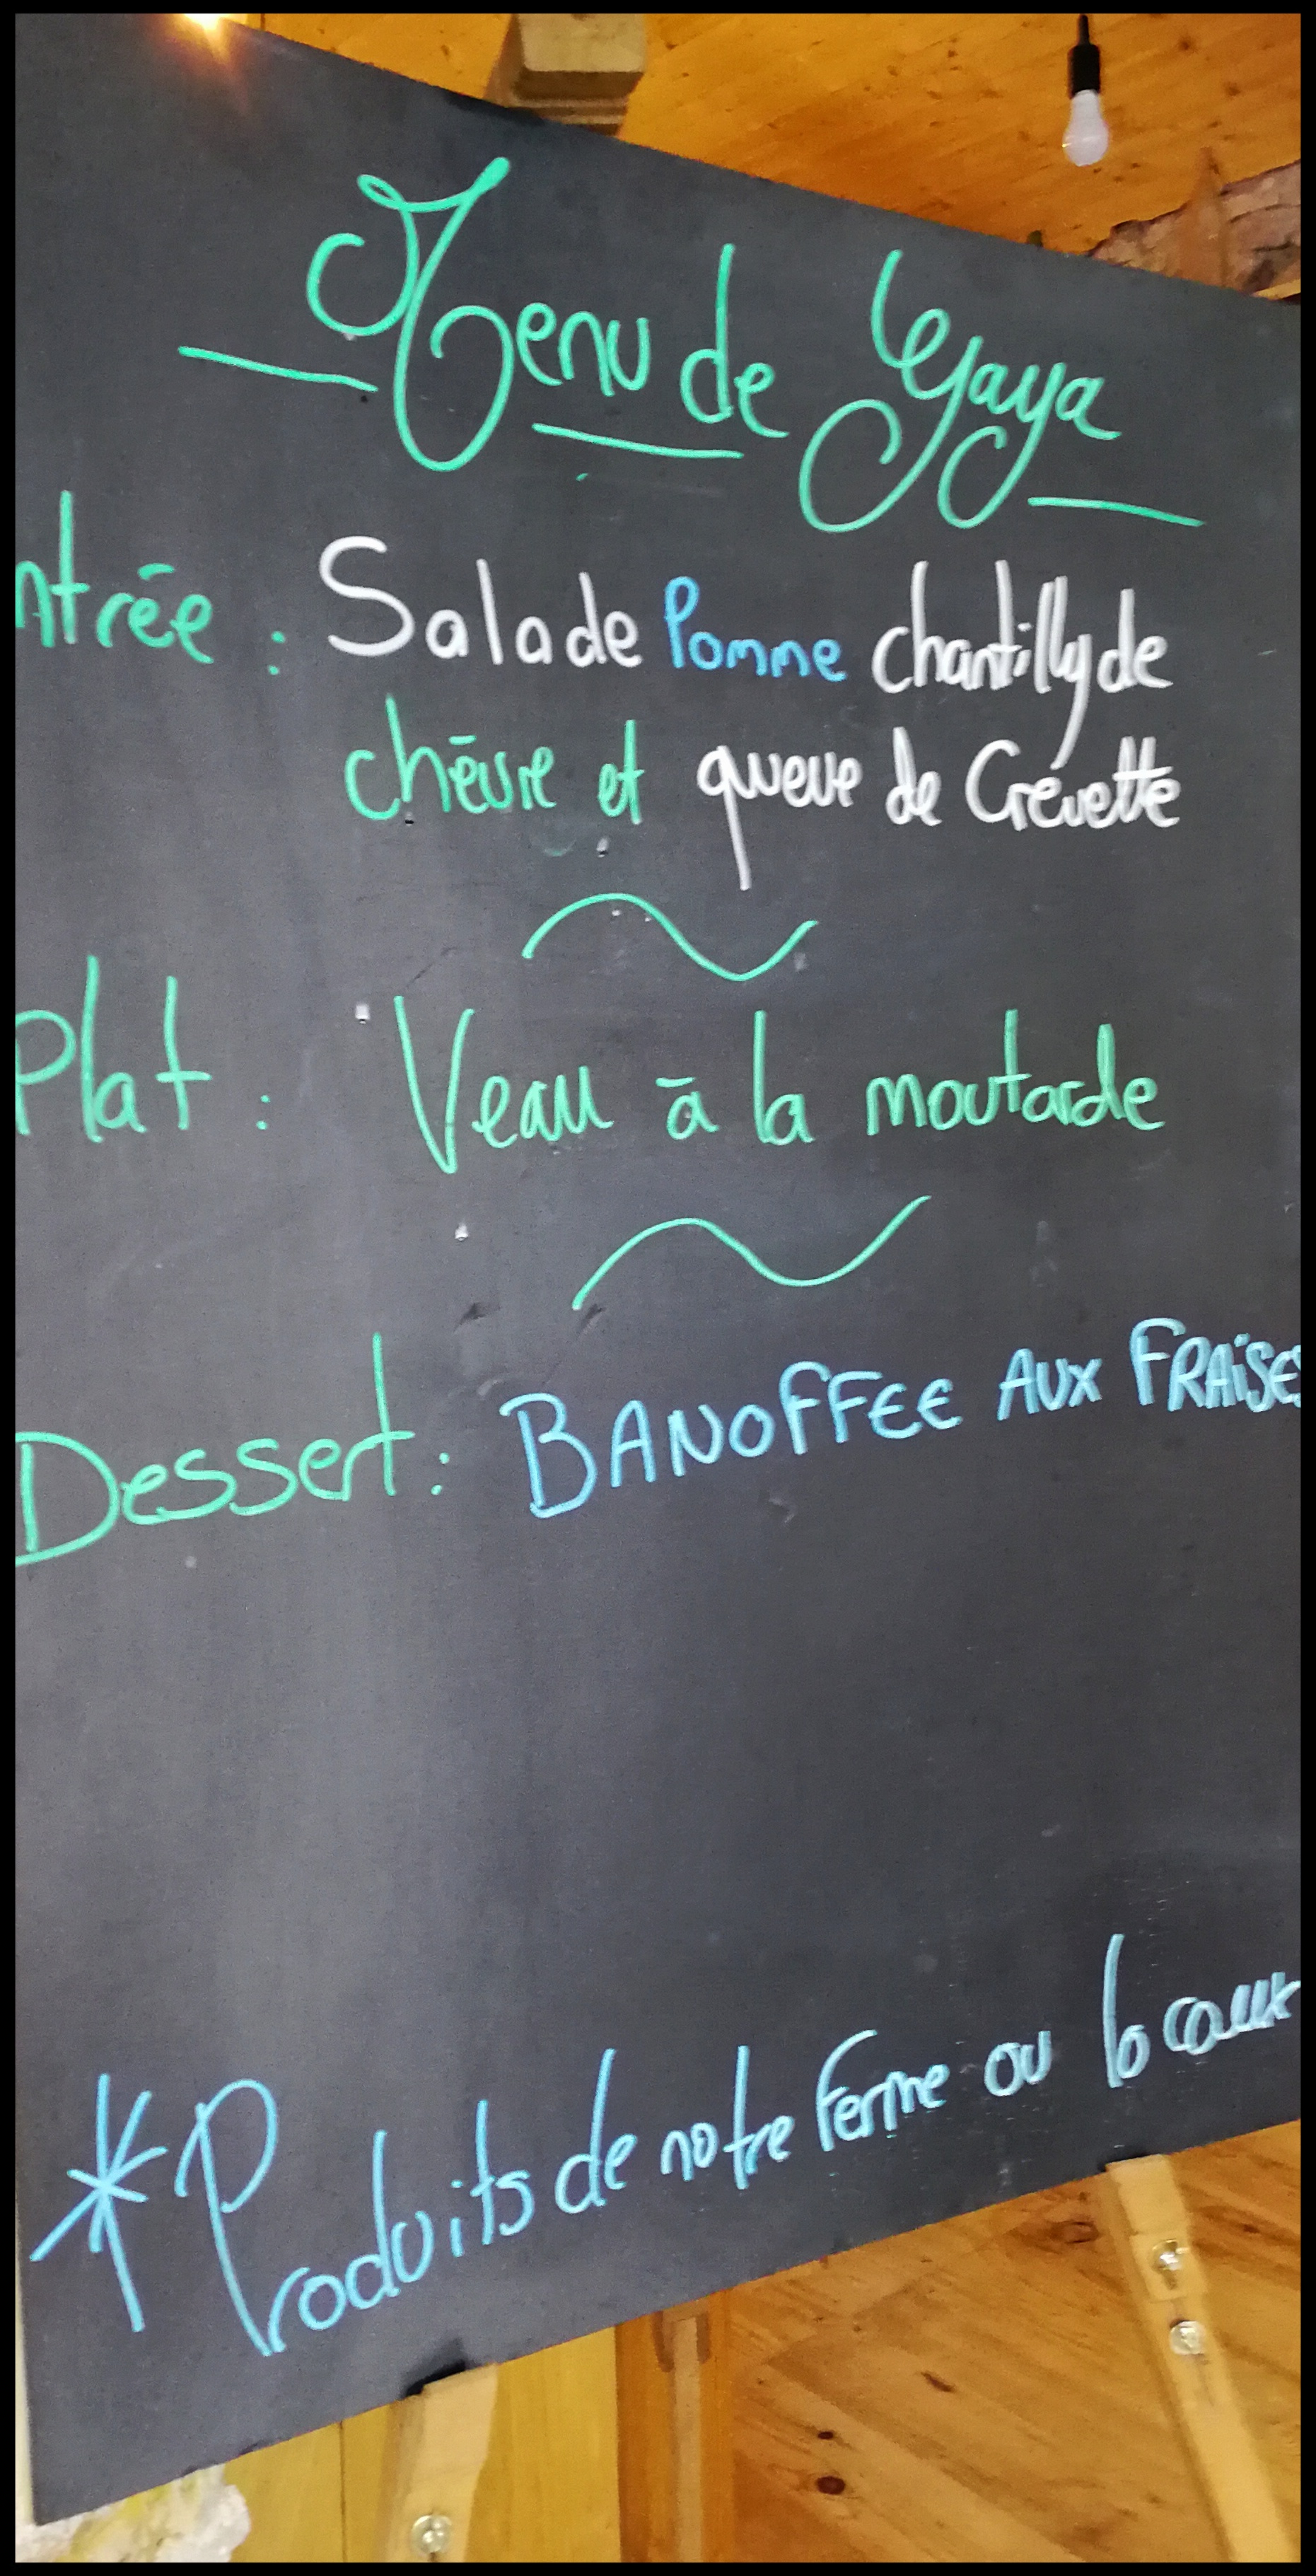 Menu de Yaya
ntrée : Salade Pomme chantilly de
chèvre et queue de Crevette
Plat : Veau à la moutarde
Dessert : BANOFFEE AUX FRAISES
* Produits de notre Ferme ou locaux